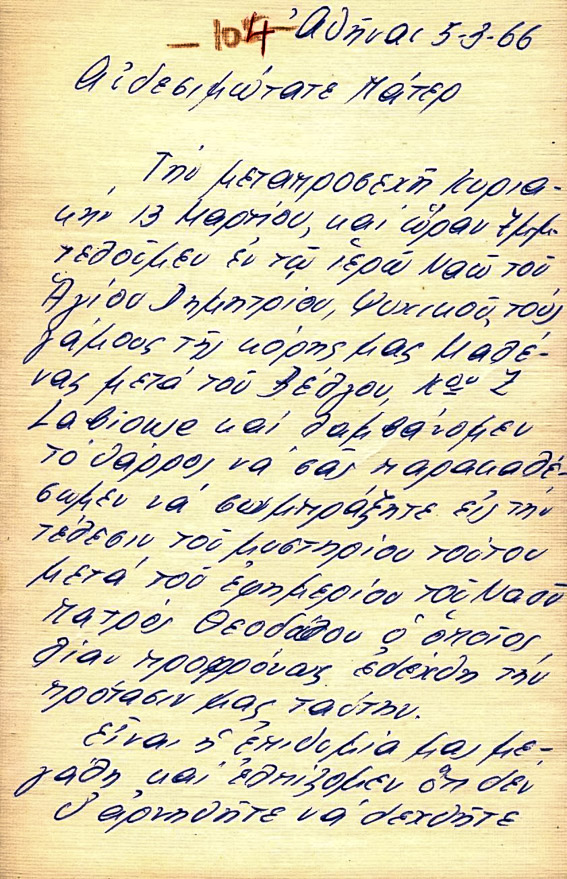 - 104 - Ἀθῆναι 5-3-66
Αἰδεσιμώτατε Πάτερ
Τήν μεταπροσεχῆ Κυρια-
κήν 13 Μαρτίου, καί ὥραν 7μμ.
τελοῦμεν ἐν τῷ ἱερῷ Ναῷ τοῦ
Ἁγίου Δημητρίου, Ψυχικοῦ, τούς
γάμους τῆς κόρης μας Μαλέ-
νας μετά τοῦ Βέλγου, Κου Ζ
καί λαμβάνομεν
τό θάρρος νά σᾶς παρακαλέ-
σωμεν νά συμπράξητε εἰς τήν
τέλεσιν τοῦ μυστηρίου τούτου
μετά τοῦ ἐφημερίου τοῦ Ναοῦ
Πατρός Θεοδούλου ὁ ὁποῖος,
λίαν προφρόνως ἐδέχθη τήν
πρότασιν μας ταύτην.
Εἶναι ἡ ἐπιθυμία μας με-
γάλη καί ἐλπίζομεν ὅτι δέν
θ' ἀρνηθῆτε νά δεχθῆτε